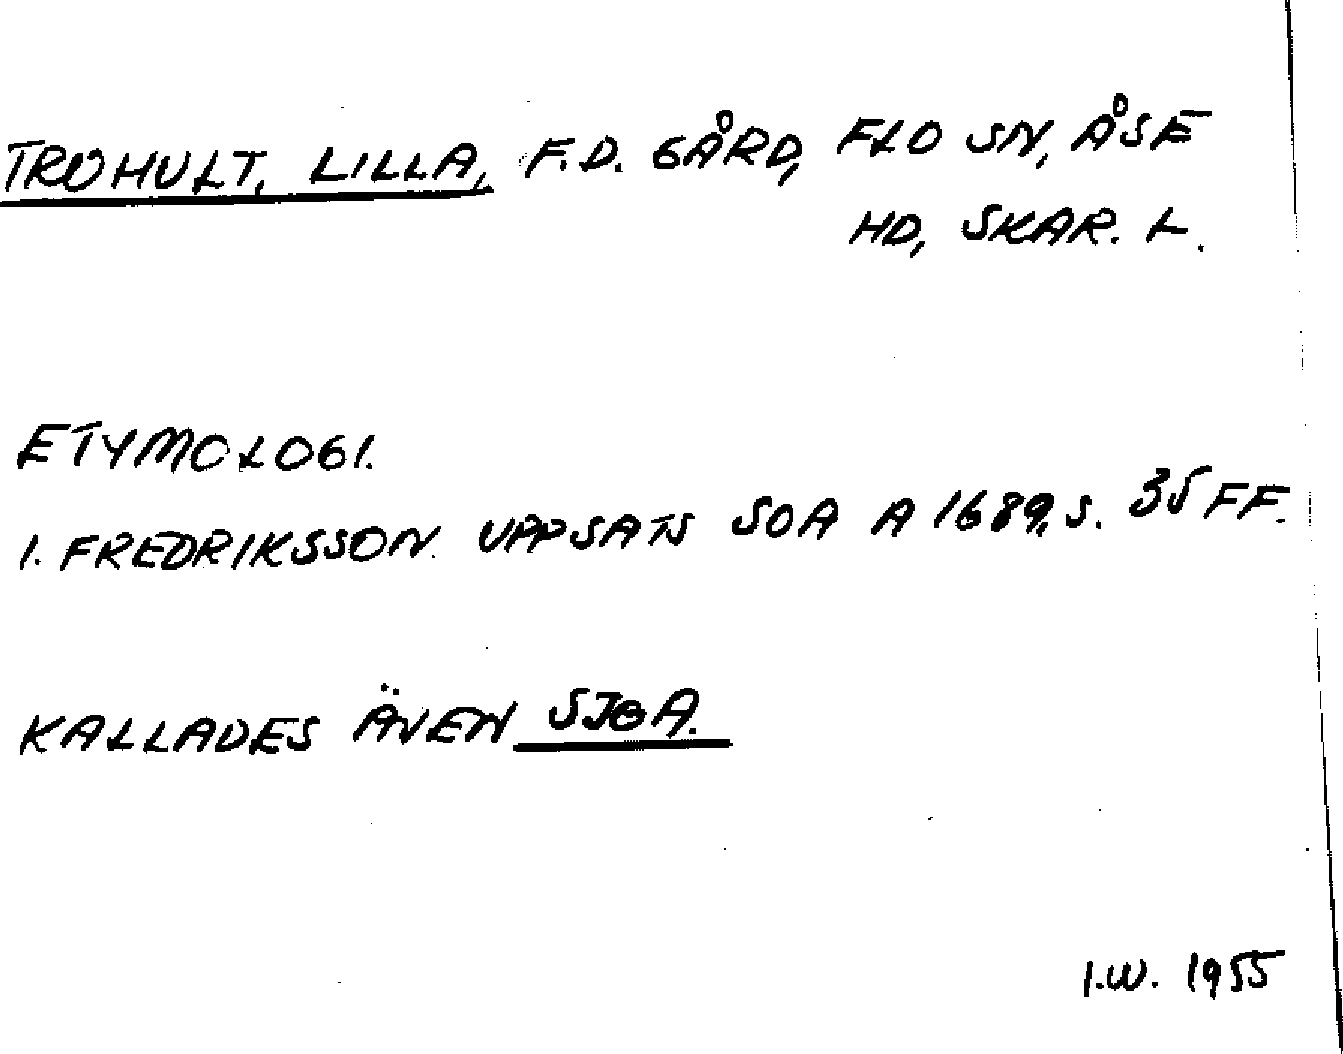 TROHULT, LILLA, F.D. GÅRD, FLO SN, ÅSE
HD, SKAR. L.
ETYMOLOGI.
I. FREDRIKSSON. UPPSATS SOA A 1689, S. 35 FF.
KALLADES ÄVEN
I.W. 1955